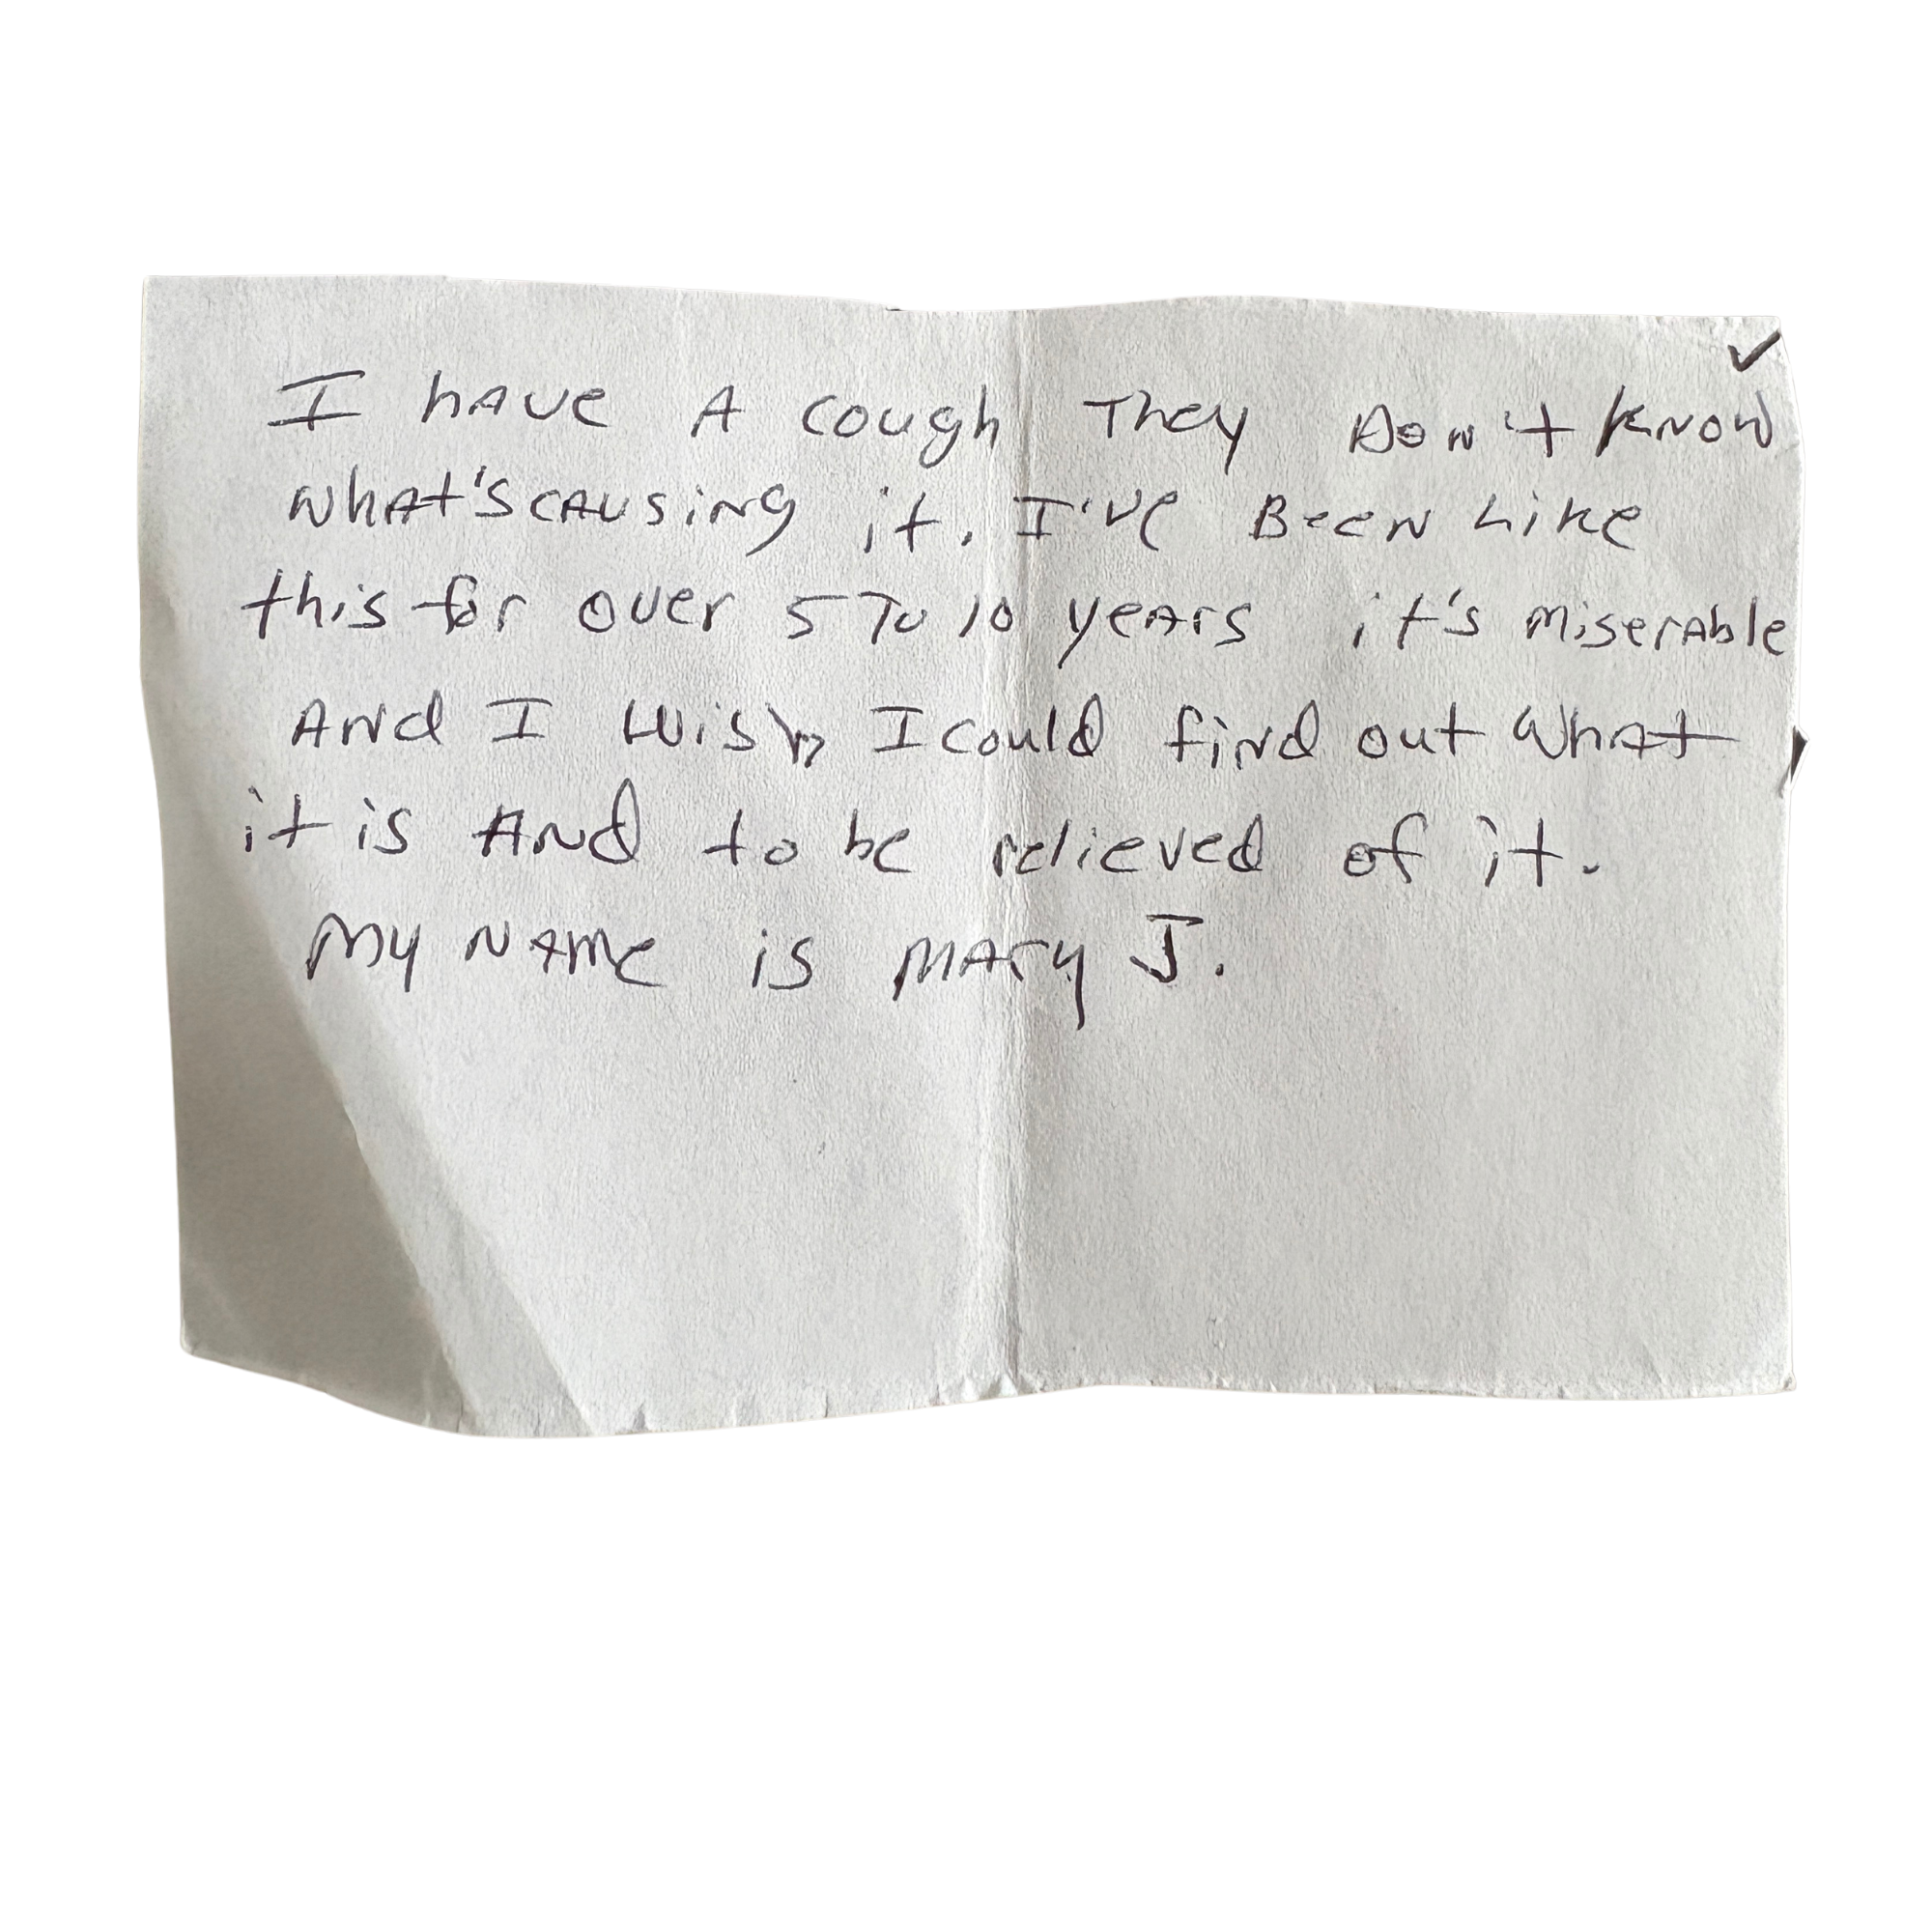 ✓
I HAVE A cough They Don't KNOW
WhAt's CAUSiNg it. I've BeeN Like
this for over 5 To 10 yeArs it's MiserAble
ANd I Wish I could fiNd out WhAt
it is ANd to be relieved of it.
My NAMe is MAry J.